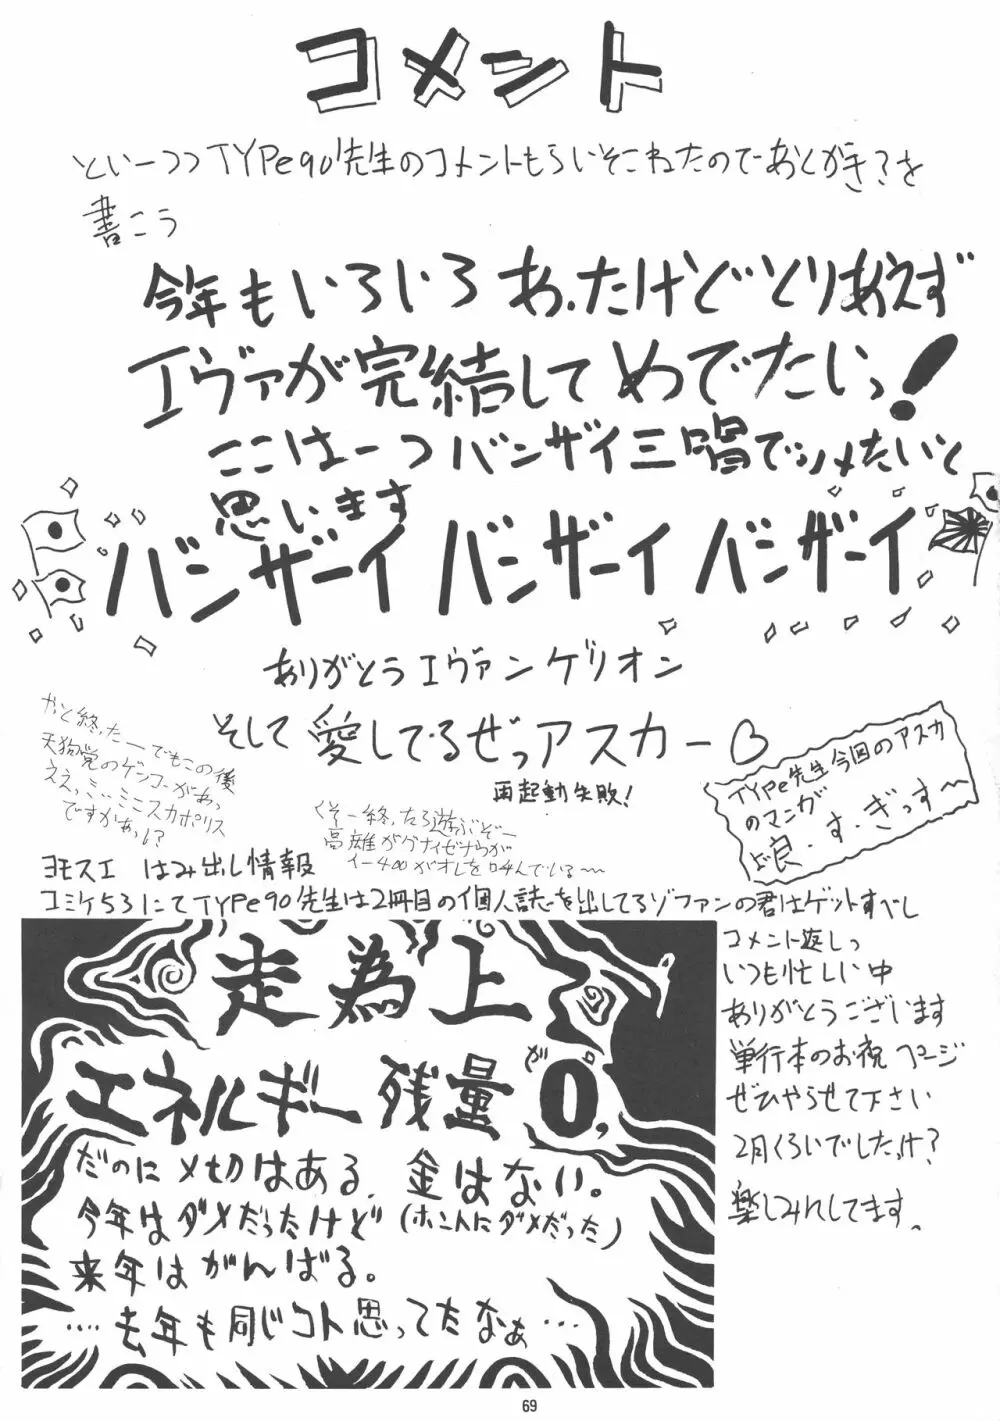 コメント
といーつつTYPe90先生のコメントもらいそこねたのであとがき?を
書こう
今年もいろいろあったけどとりあえず
エヴァが完結してめでたいっ!
ここは一つバンザイ三唱でシメたいと
思います
バンザーイ バンザーイ バンザーイ
ありがとうエヴァンゲリオン
そして愛してるぜっアスカー♡
再起動失敗!
やっと終ったーでもこの後
天狗党のゲンコーがあっ
ええっミ、ミニスカポリス
ですかあっ!?
くそー終ったら遊ぶぞー
高雄が
イー400がオレを呼んでいる〜
TYPe先生今回のアスカ
のマンガ
良・す・ぎっす〜
ヨモスエ はみ出し情報
コミケ53にてTYPe90先生は2冊目の個人誌を出してるゾファンの君はゲットすべし
コメント返しっ
いつも忙しい中
ありがとうございます
単行本のお祝ページ
ぜひやらせて下さい
2月くらいでしたっけ?
楽しみにしてます。
走為上
エネルギー残量が0、
だのに〆切はある、金はない。
今年はダメだったけど(ホントにダメだった)
来年はがんばる。
‥‥去年も同じコト思ってたなぁ‥‥
69